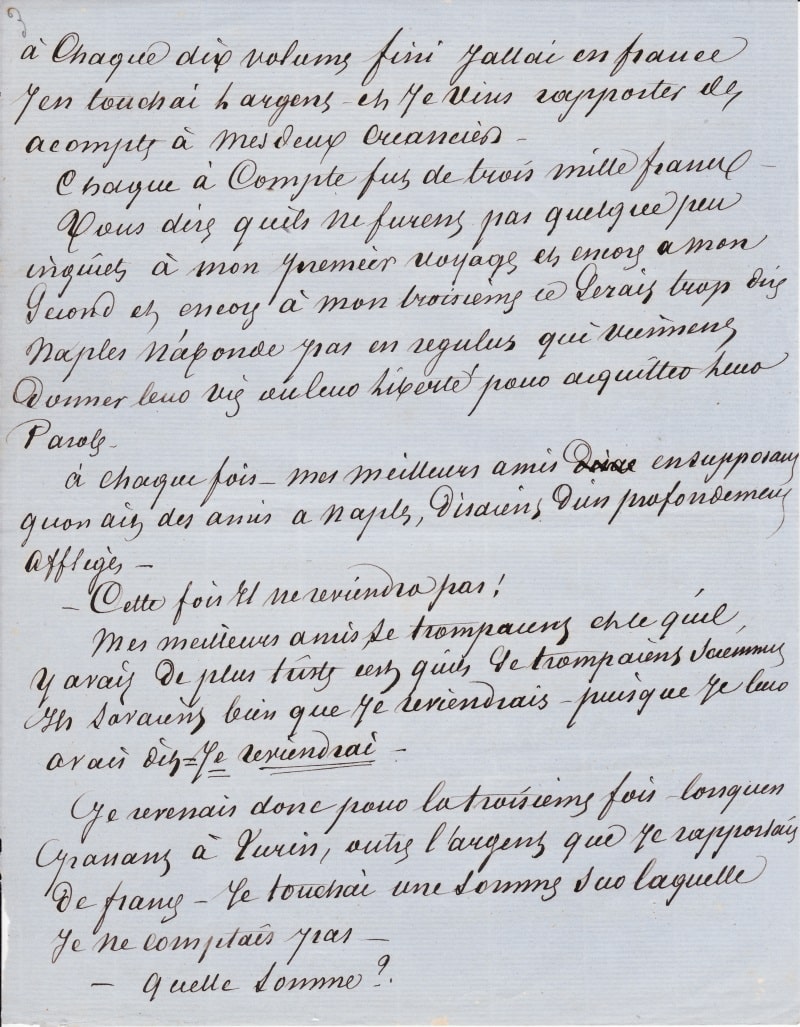 3
à Chaque dix volume fini j'allai en france
J'en touchai l'argent et Je vins rapporter des
acompte à mes deux Creanciers –
Chaque à Compte fut de trois mille francs –
Vous dire quils ne furent pas quelque peu
inquiets à mon premier voyage et encore a mon
Second et encore à mon troisième ce Serait trop dire
Naples n'abonde pas en regulus qui viennent
Donner leur vie ou leur liberté pour acquitter leur
Parole –
à chaque fois – mes meilleurs amis en supposant
quon ait des amis a Naples, disaient d'un profondement
affligés –
– Cette fois Il ne reviendra pas!
Mes meilleurs amis Se trompaient et ce qu'il
y avait de plus triste cest quils Se trompaient sciemment
Ils savaient bien que Je reviendrais – puisque Je leur
avais dit = Je reviendrai –
Je revenais donc pour la troisième fois – lorsquen
passant à Turin, outre l'argent que Je rapportais
De france – Je touchai une somme sur laquelle
Je ne comptais pas –
– Quelle somme?